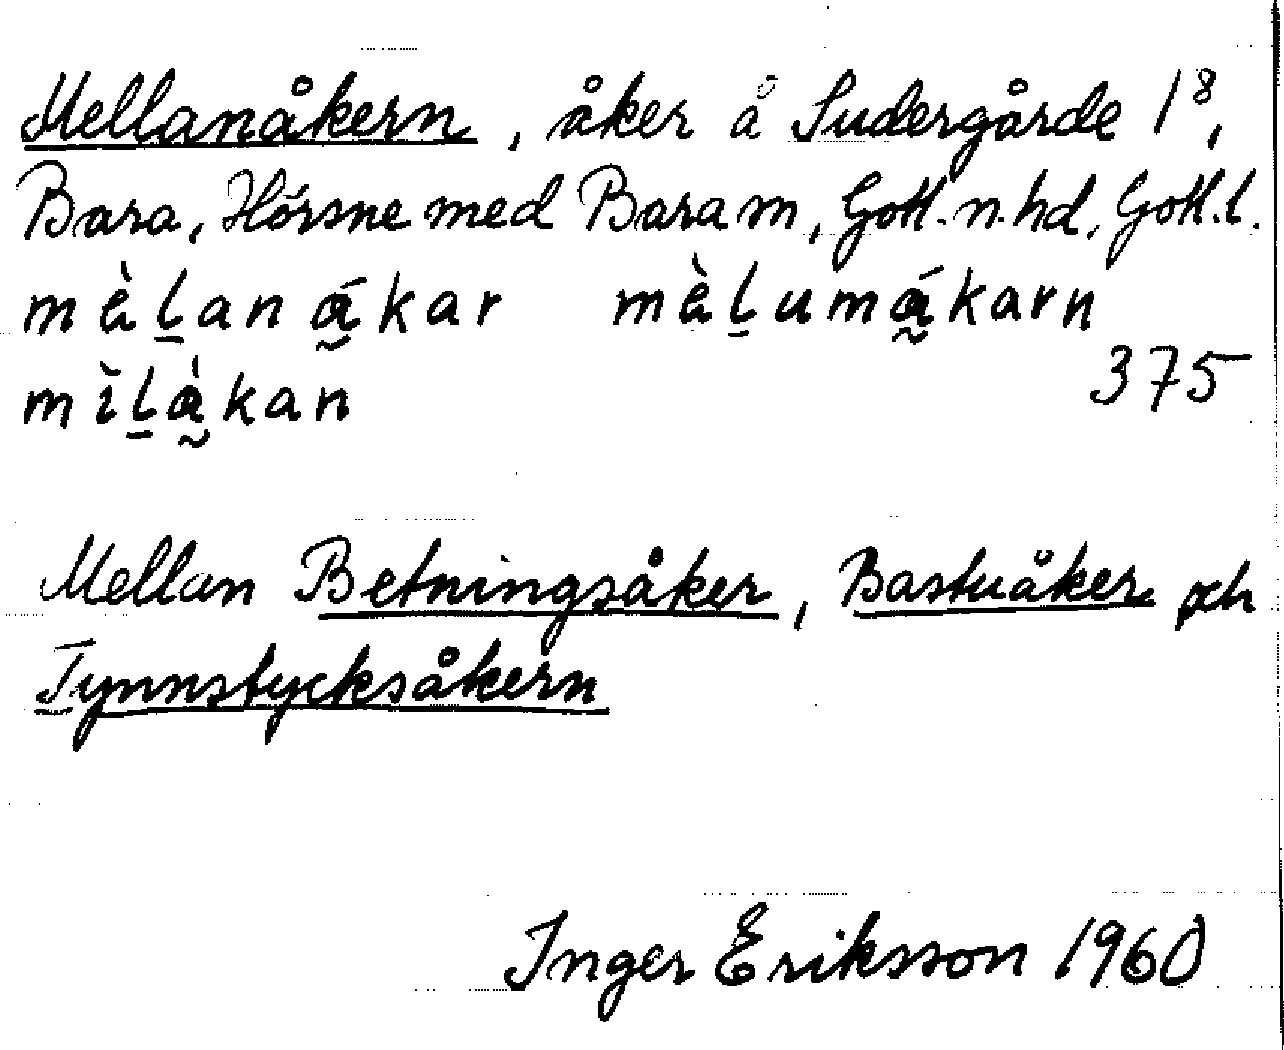 Mellanåkern, åker å Sudergårde 1⁸,
Bara, Hörsne med Bara sn, Gotl. n. hd, Gotl. l.
mὲl̠an á̰kar mὲl̠umá̰karn
mĭl̠à̰kan 375
Mellan Betningsåker, Bastuåker och
Tynnstycksåkern
Inger Eriksson 1960